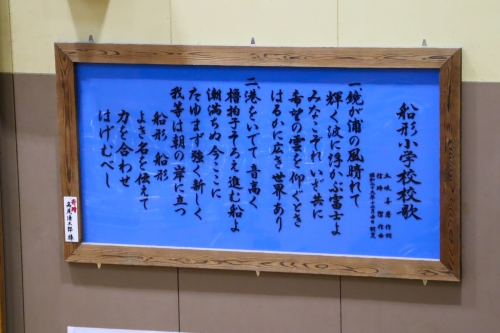 船形小学校校歌
一、鏡が浦の風晴れて
輝く波に浮かぶ富士よ
みなこぞれいざ共に
希望の雲を仰ぐとき
はるかに広き世界あり
二、港をいでて音高く
櫓拍子そろえ進む船よ
潮満ちぬ今ここに
たゆまず強く新しく
我等は朝の岸に立つ
船形 船形
よき名を伝えて
力を合わせ
はげむべし
寄贈